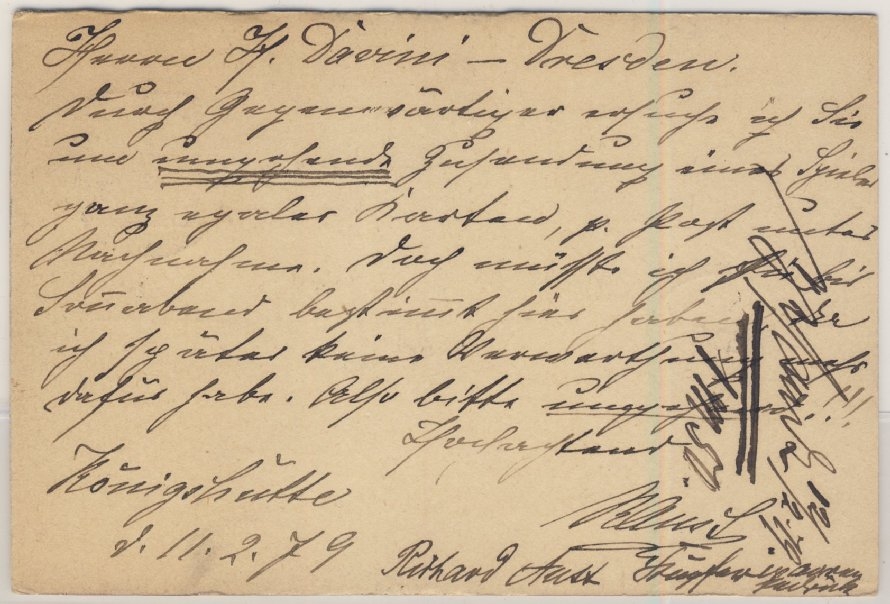 Herrn H. Davini – Dresden.
Durch Gegenwärtiges ersuche ich Sie
um umgehende Zusendung eines Spieles
ganz egaler Karten, p. Post unter
Nachnahme. Doch müßte ich sie bis
Sonnabend bestimmt hier haben, da
ich später keine Verwerthung mehr
dafür habe. Also bitte umgehend!!!
Hochachtend
Königshütte
d. 11.2.79
Richard